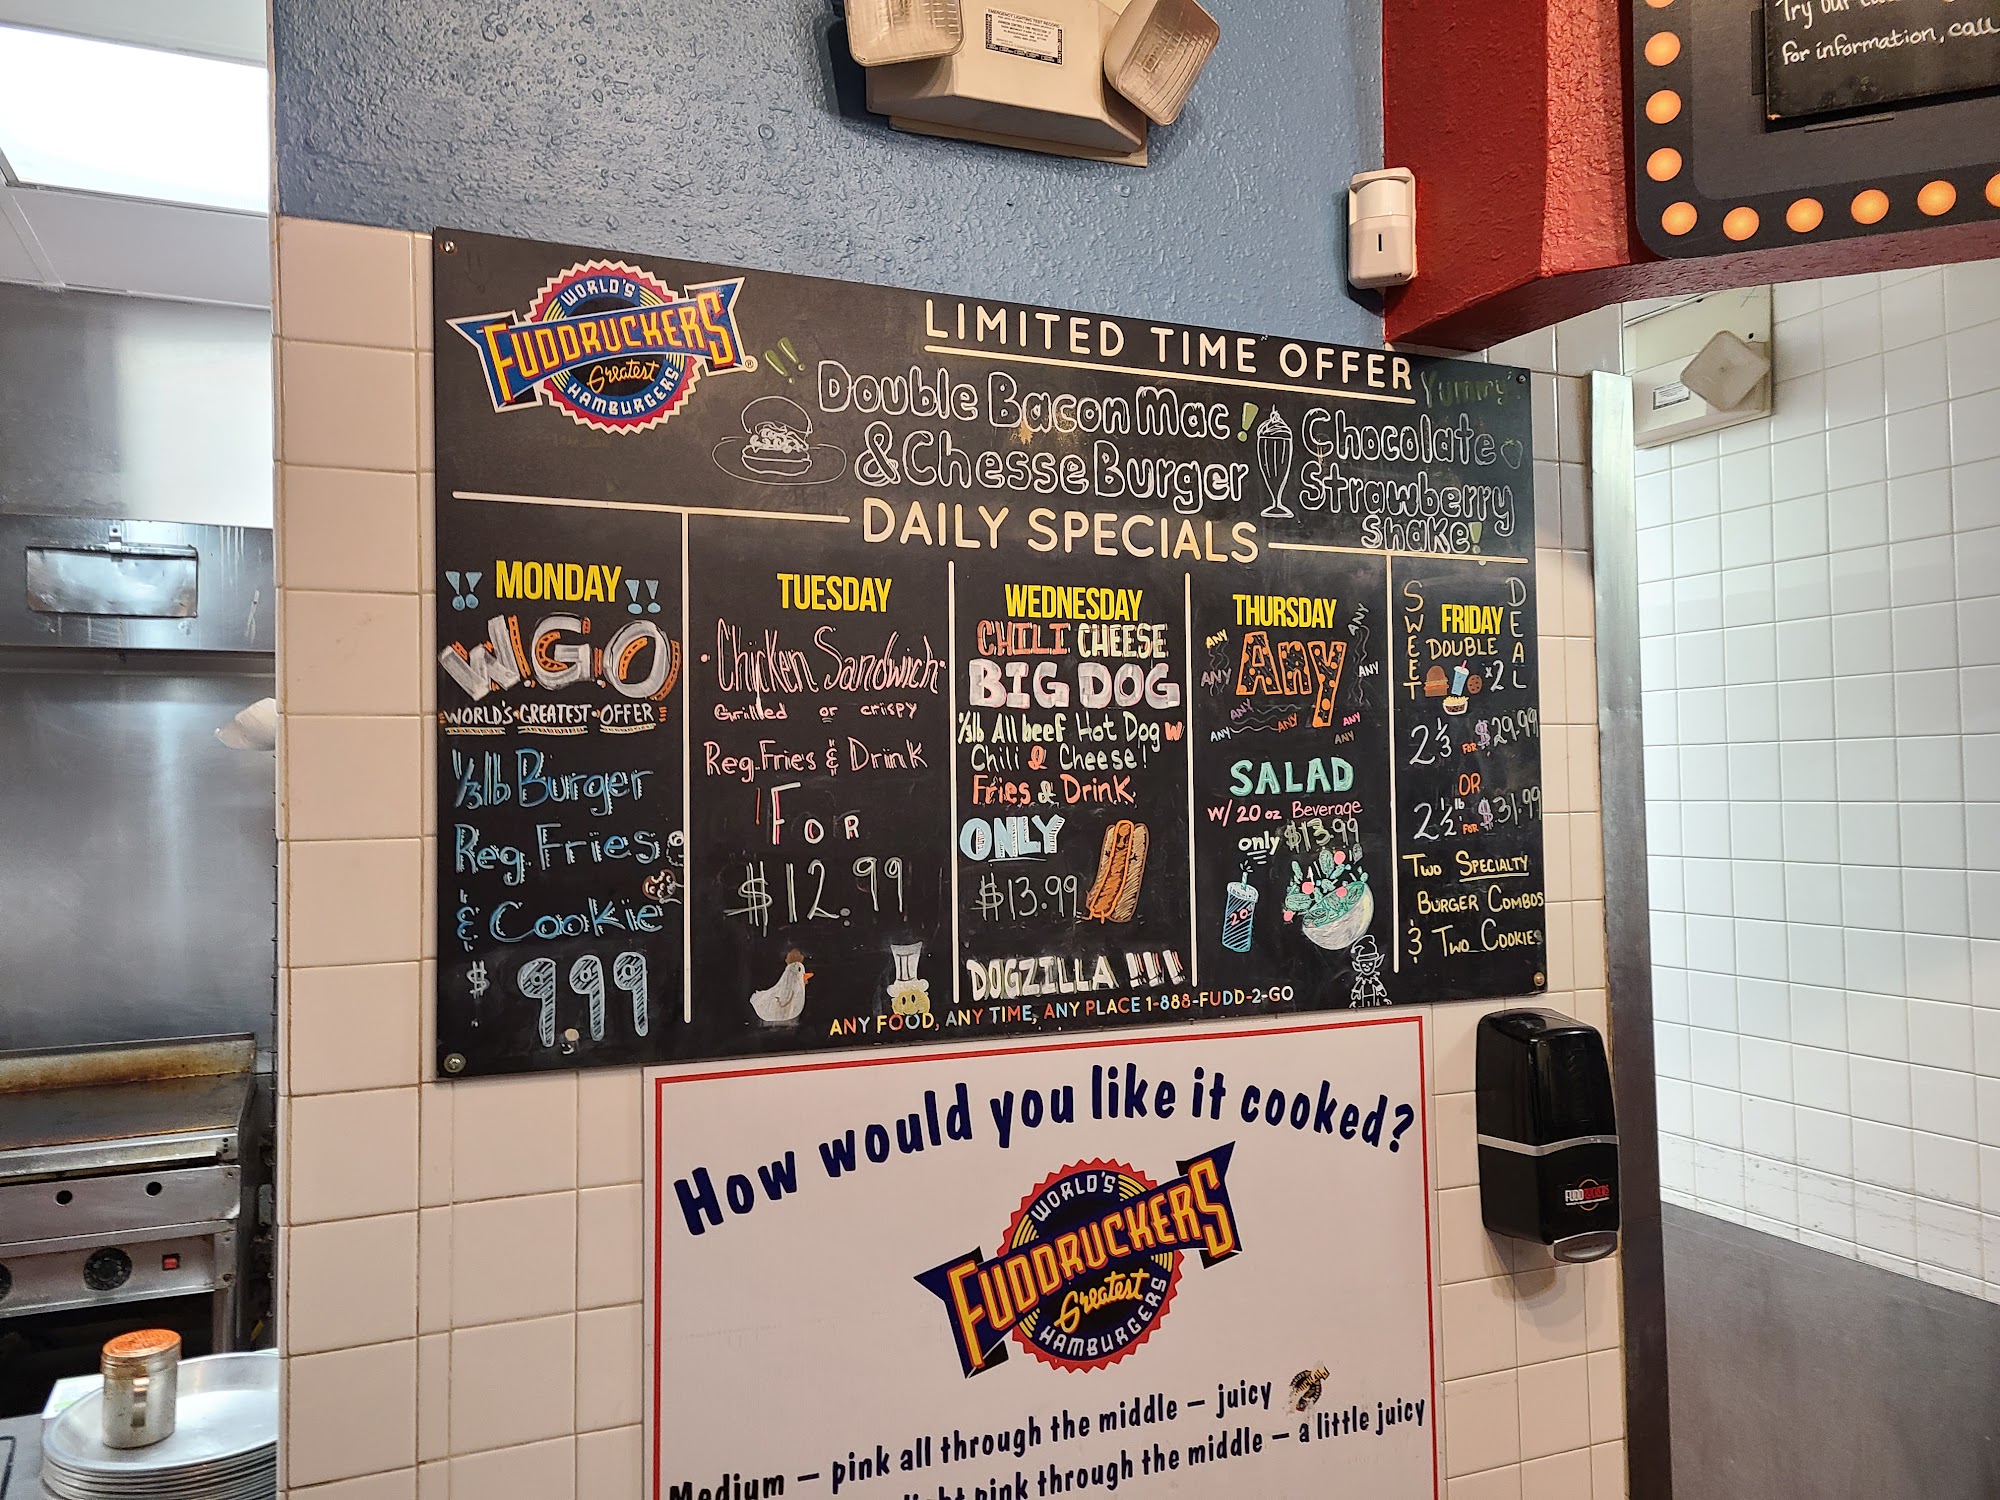 Try our
For information, call
WORLD'S
FUDDRUCKERS
Greatest
HAMBURGERS
®
LIMITED TIME OFFER
Double Bacon Mac
& Chesse Burger
Yummy!
Chocolate
Strawberry
Shake!
DAILY SPECIALS
MONDAY
W.G.O
WORLD'S GREATEST OFFER
1/3lb Burger
Reg. Fries
& Cookie
$ 9.99
TUESDAY
Chicken Sandwich
Grilled or crispy
Reg. Fries & Drink
FOR
$12.99
WEDNESDAY
CHILI CHEESE
BIG DOG
1/3lb All beef Hot Dog w
Chili & Cheese!
Fries & Drink
ONLY
$13.99
DOGZILLA !!!
THURSDAY
ANY
ANY
ANY
ANY
ANY
ANY
ANY
ANY
ANY
Any
SALAD
w/ 20 oz Beverage
only $13.99
20
FRIDAY
SWEET
DOUBLE
DEAL
x2
2 1/3 FOR $29.99
OR
2 1/2 lb FOR $31.99
TWO SPECIALTY
BURGER COMBOS
& TWO COOKIES
ANY FOOD, ANY TIME, ANY PLACE 1-888-FUDD-2-GO
How would you like it cooked?
WORLD'S
FUDDRUCKERS
Greatest
HAMBURGERS
Medium – pink all through the middle – juicy
pink through the middle – a little juicy
FUDDRUCKERS